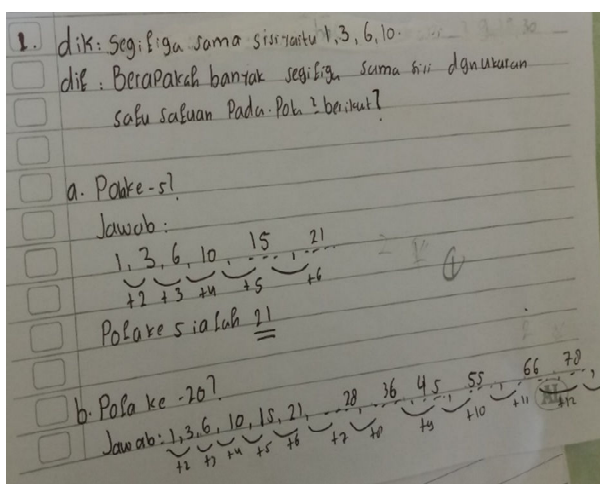 1. dik: Segitiga sama sisi yaitu 1, 3, 6, 10.
dit: Berapakah banyak segitiga sama sisi dgn ukuran
satu satuan Pada Pola² berikut?
a. Pola ke-5?
Jawab:
1, 3, 6, 10, 15, 21
+2 +3 +4 +5 +6
Pola ke 5 ialah 21
b. Pola ke-20?
Jawab: 1, 3, 6, 10, 15, 21, 28, 36, 45, 55, 66, 78,
+2 +3 +4 +5 +6 +7 +8 +9 +10 +11 +12